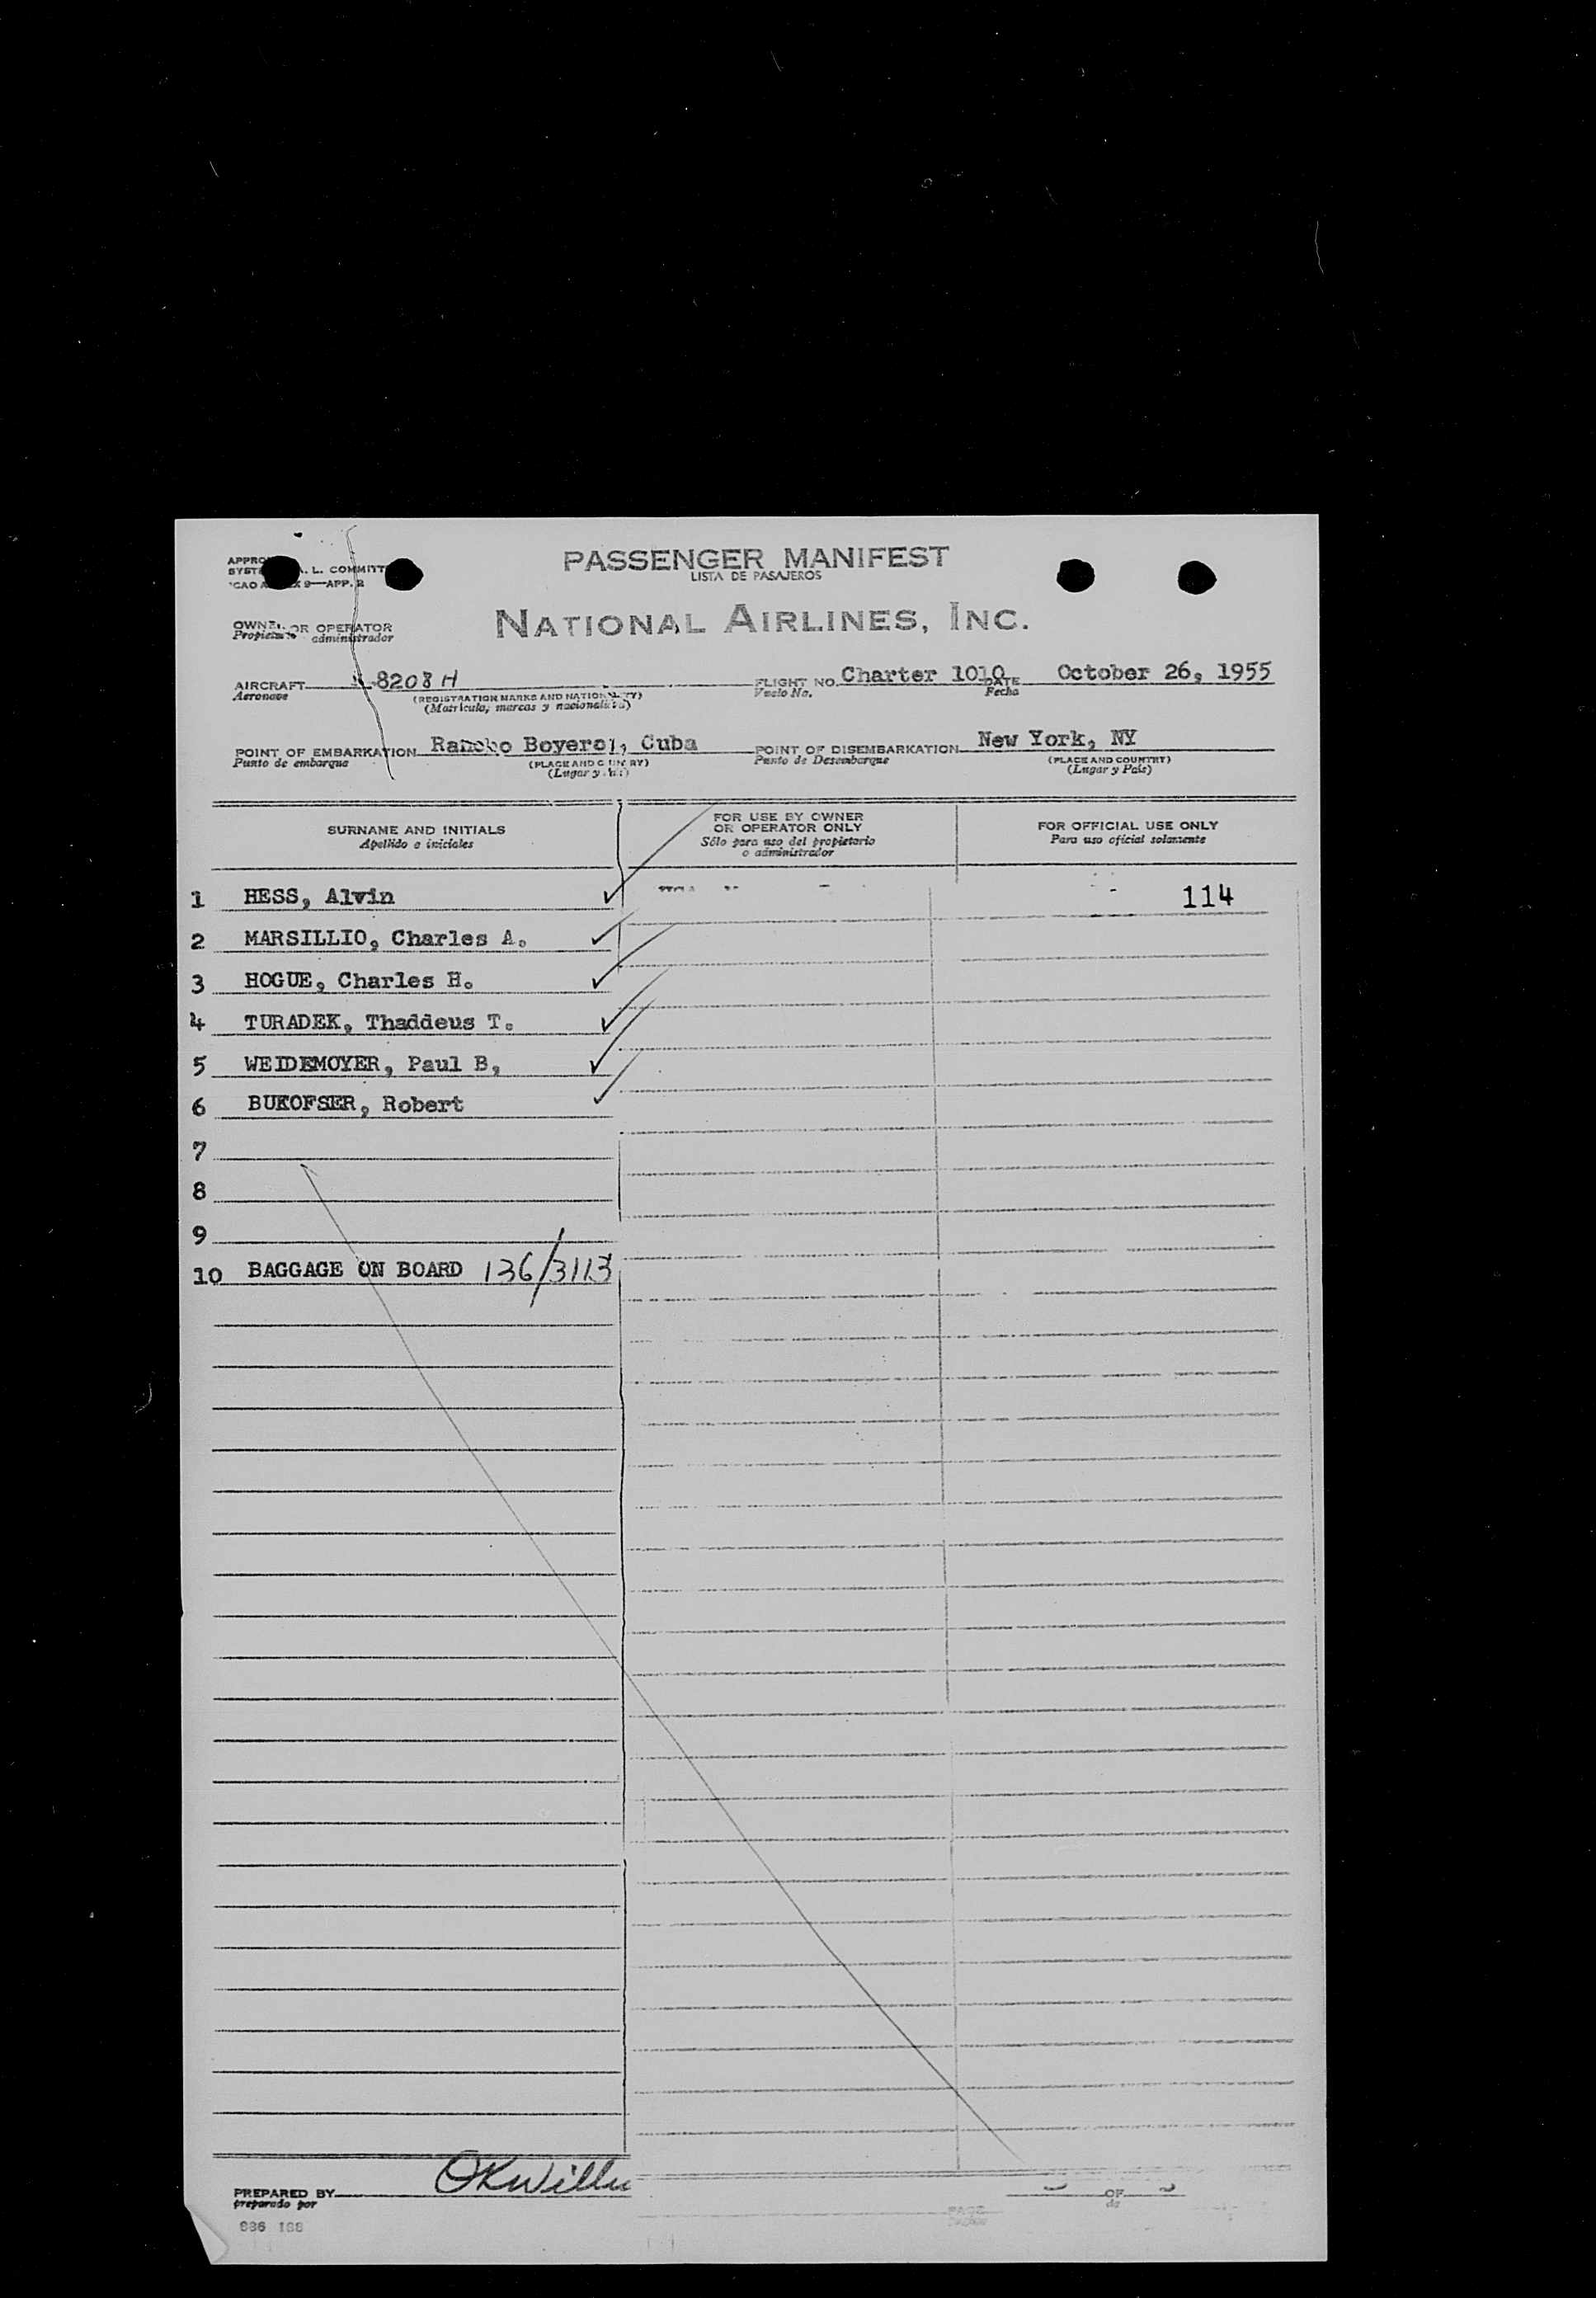 PASSENGER MANIFEST
LISTA DE PASAJEROS
L. COMMITT
9—APP. 2
NATIONAL AIRLINES, INC.
OWNER OR OPERATOR
administrador
AIRCRAFT 8208 H FLIGHT NO. Charter 1010 DATE October 26, 1955
Aeronave (REGISTRATION MARKS AND NATIONALITY) Vuelo No. Fecha
(Matrícula, marcas y nacionalidad)
POINT OF EMBARKATION Rancho Boyeros, Cuba POINT OF DISEMBARKATION New York, NY
Punto de embarque (PLACE AND COUNTRY) Punto de Desembarque (PLACE AND COUNTRY)
(Lugar y País)
SURNAME AND INITIALS
Apellido e iniciales
FOR USE BY OWNER
OR OPERATOR ONLY
Sólo para uso del propietario
o administrador
FOR OFFICIAL USE ONLY
Para uso oficial solamente
1 HESS, Alvin 114
2 MARSILLIO, Charles A.
3 HOGUE, Charles H.
4 TURADEK, Thaddeus T.
5 WEIDEMOYER, Paul B,
6 BUKOFSER, Robert
7
8
9
10 BAGGAGE ON BOARD 136/3113
PREPARED BY OF
preparado por de